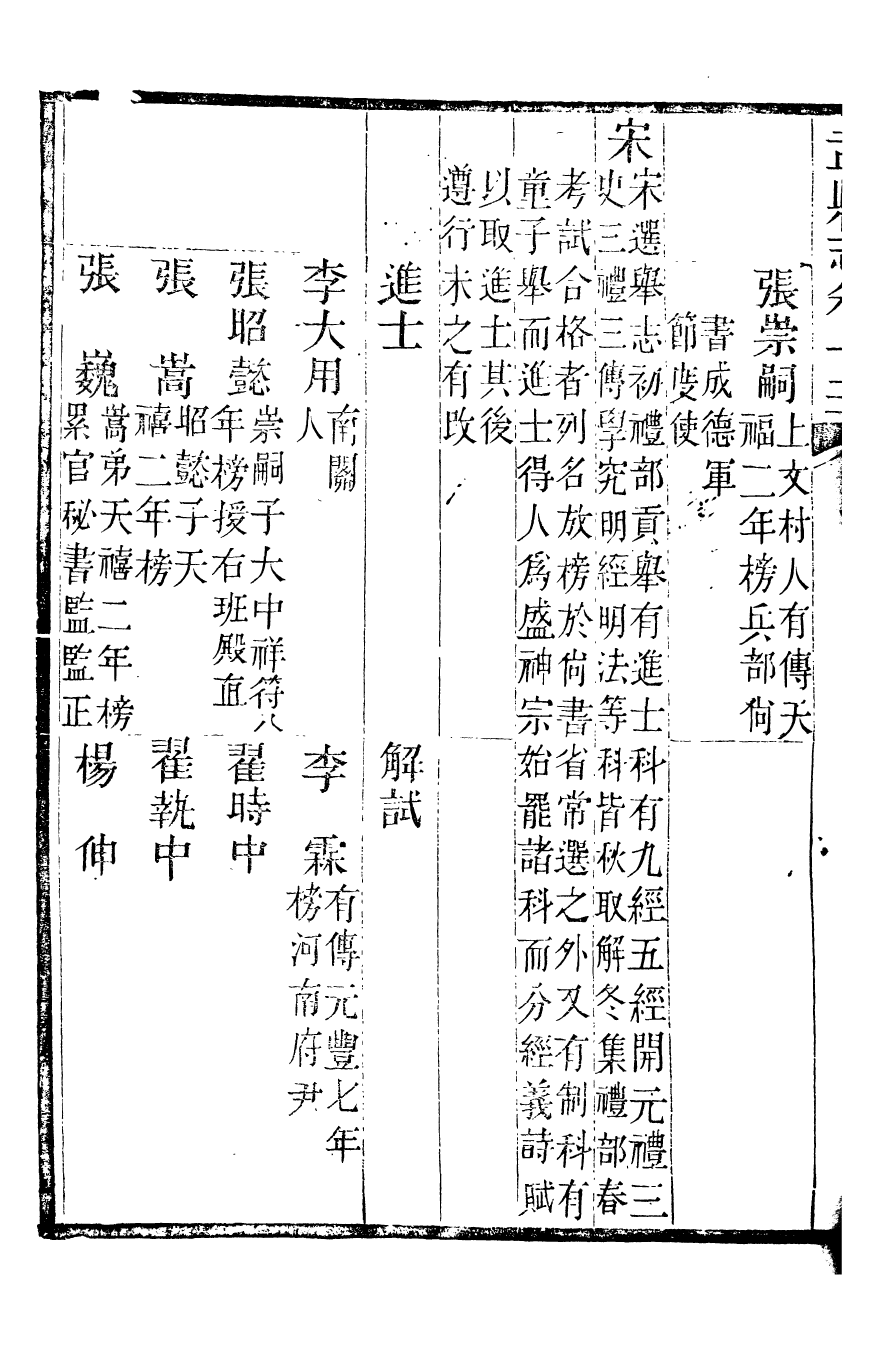 張崇嗣
上文村人有傳天
福二年榜兵部尙
書成德軍
節度使
宋
宋選舉志初禮部貢舉有進士科有九經五經開元禮三
史三禮三傳學究明經明法等科皆秋取解冬集禮部春
考試合格者列名放榜於尙書省常選之外又有制科有
童子舉而進士得人爲盛神宗始罷諸科而分經義詩賦
以取進士其後
遵行未之有改
進士
解試
李大用
南關
人
李霖
有傳元豐七年
榜河南府尹
張昭懿
崇嗣子大中祥符八
年榜授右班殿直
翟時中
張嵩
昭懿子天
禧二年榜
翟執中
張巍
嵩弟天禧二年榜
累官秘書監監正
楊伸